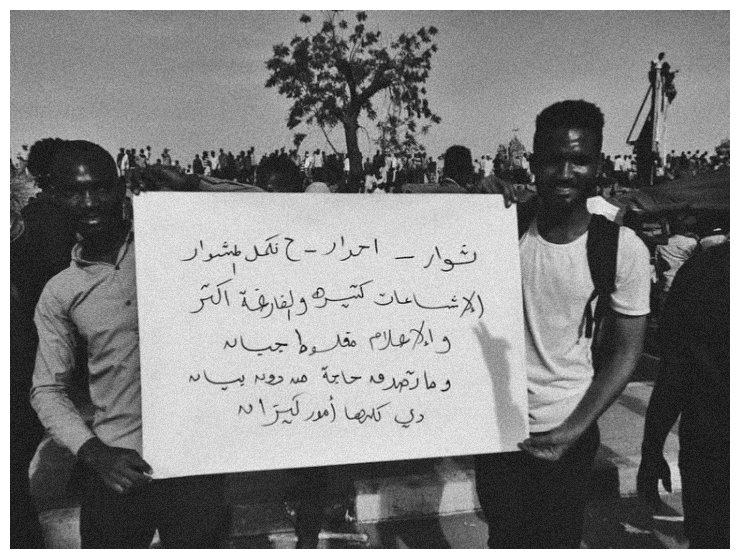 ثوار - احرار - ح نكمل المشوار
الاشاعات كتيره والفارغة اكتر
والاعلام مقلوط جبان
وماتصدق حاجة من دون بيان
دي كلها أمور كيزان